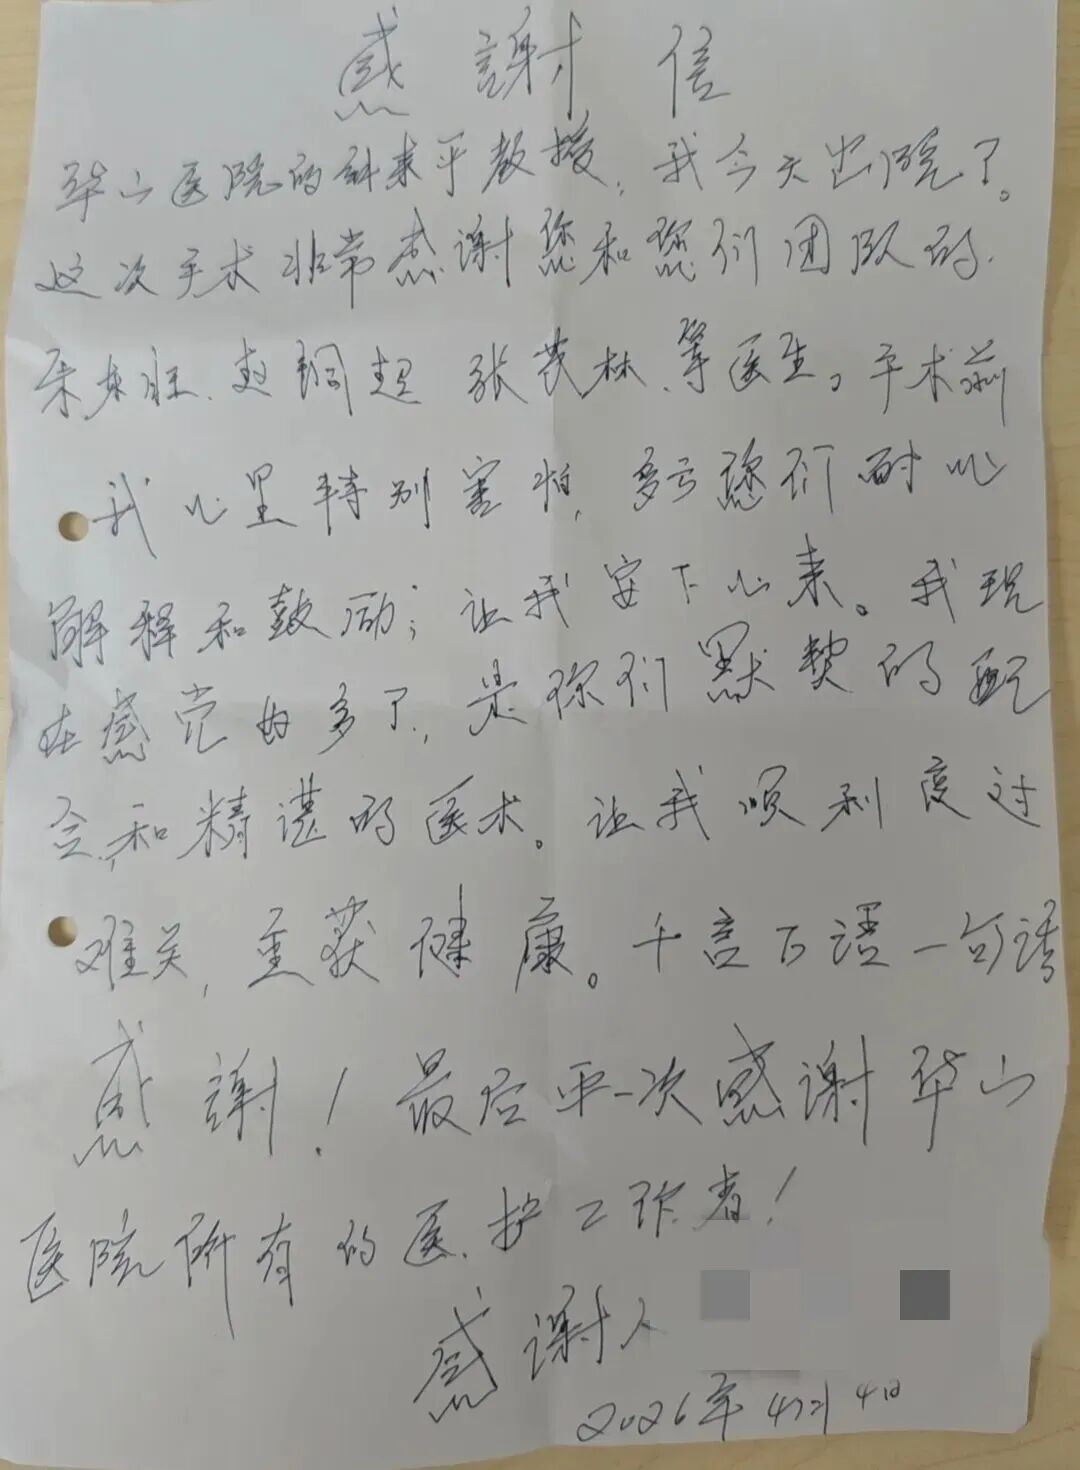 感謝信
华山医院的 来平教授，我今天出院了。
这次手术非常感谢您和您们团队的
张茂林、等医生。手术前
我心里特别害怕，多亏您们耐心
解释和鼓励；让我安下心来。我现
在感觉好多了，是你们默契的配
合，和精湛的医术。让我顺利度过
难关，重获健康。千言万语一句话
感謝！最后再一次感谢华山
医院所有的医、护工作者！
感谢人
2026年4月4日